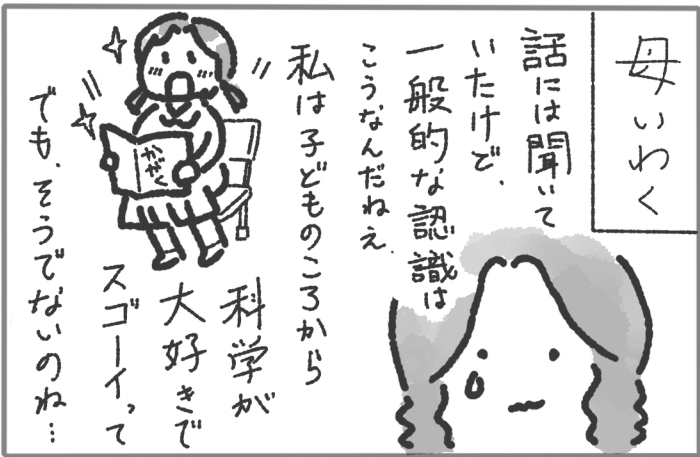 母いわく
話には聞いて
いたけど、
一般的な認識は
こうなんだねえ.
私は子どものころから
科学が
大好きで
スゴーイって
でも、そうでないのね…
かがく